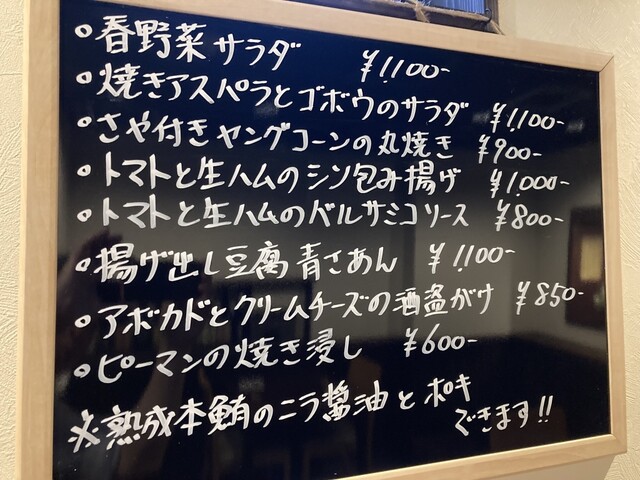 ○春野菜サラダ ¥1,100-
○焼きアスパラとゴボウのサラダ ¥1,100-
○さや付きヤングコーンの丸焼き ¥900-
○トマトと生ハムのシソ包み揚げ ¥1,000-
○トマトと生ハムのバルサミコソース ¥800-
○揚げ出し豆腐 青さあん ¥1,100-
○アボカドとクリームチーズの酒盗がけ ¥850-
○ピーマンの焼き浸し ¥600-
※熟成本鮪のニラ醤油とポキ
できます!!